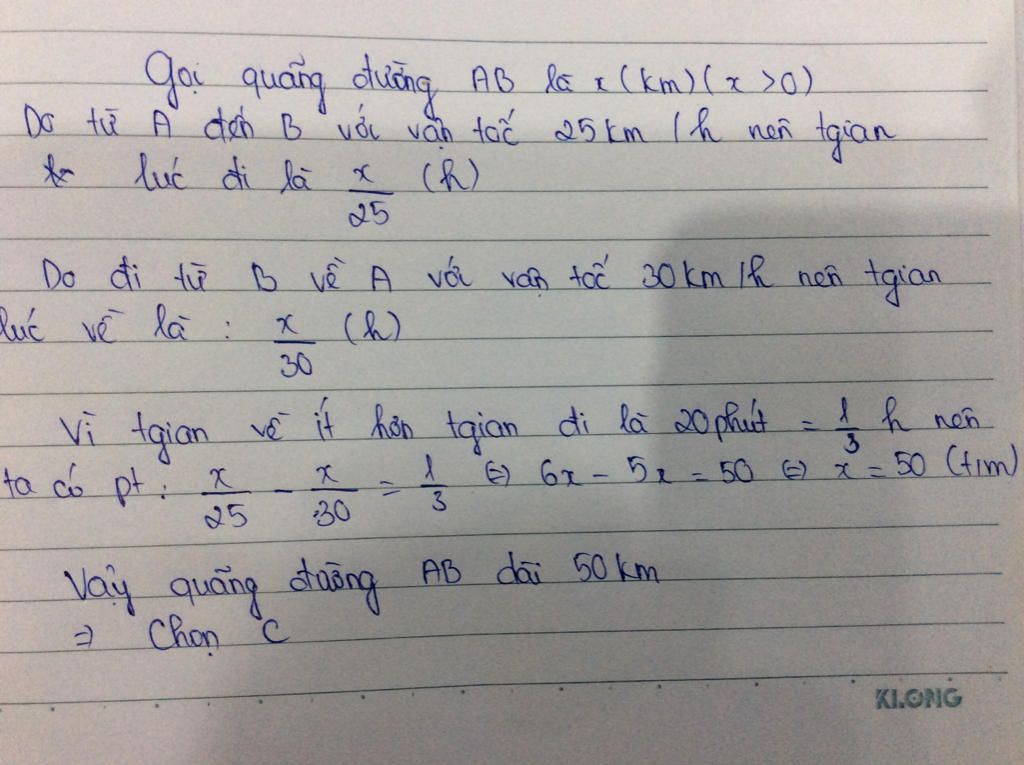 Gọi quãng đường AB là x (km) (x > 0)
Do từ A đến B với vận tốc 25 km /h nên tgian
lúc đi là x/25 (h)
Do đi từ B về A với vận tốc 30 km /h nên tgian
lúc về là : x/30 (h)
Vì tgian về ít hơn tgian đi là 20 phút = 1/3 h nên
ta có pt : x/25 - x/30 = 1/3 ⇔ 6x - 5x = 50 ⇔ x = 50 (t/m)
Vậy quãng đường AB dài 50 km
⇒ Chọn C
KLONG